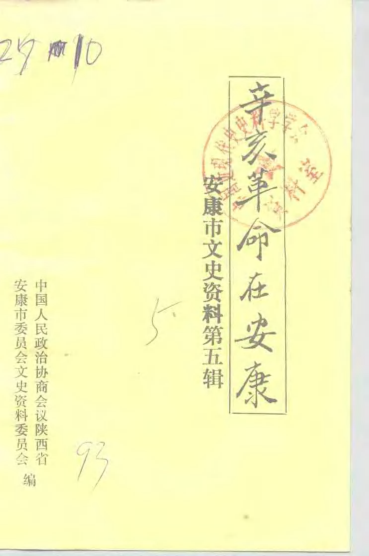 辛亥革命在安康
安康市文史资料第五辑
中国人民政治协商会议陕西省
安康市委员会文史资料委员会 编
5
93